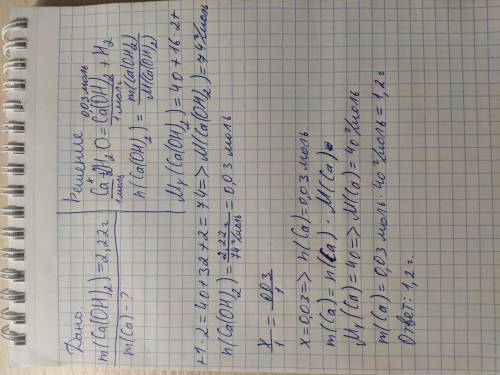 Дано
m(Ca(OH)2)=2,22г
m(Ca) - ?
Решение
x 0,03 моль
Ca+2H2O=Ca(OH)2+H2
1моль 1моль
n(Ca(OH)2)= m(Ca(OH)2)/M(Ca(OH)2)
Mr(Ca(OH)2)=40+16·2+
+1·2=40+32+2=74=>M(Ca(OH)2)=74г/моль
n(Ca(OH)2)=2,22г/74г/моль=0,03 моль
x/1=0,03/1
x=0,03=>n(Ca)=0,03моль
m(Ca)=n(Ca)·M(Ca)
Mr(Ca)=40=>M(Ca)=40г/моль
m(Ca)=0,03моль·40г/моль=1,2г
Ответ: 1,2г.